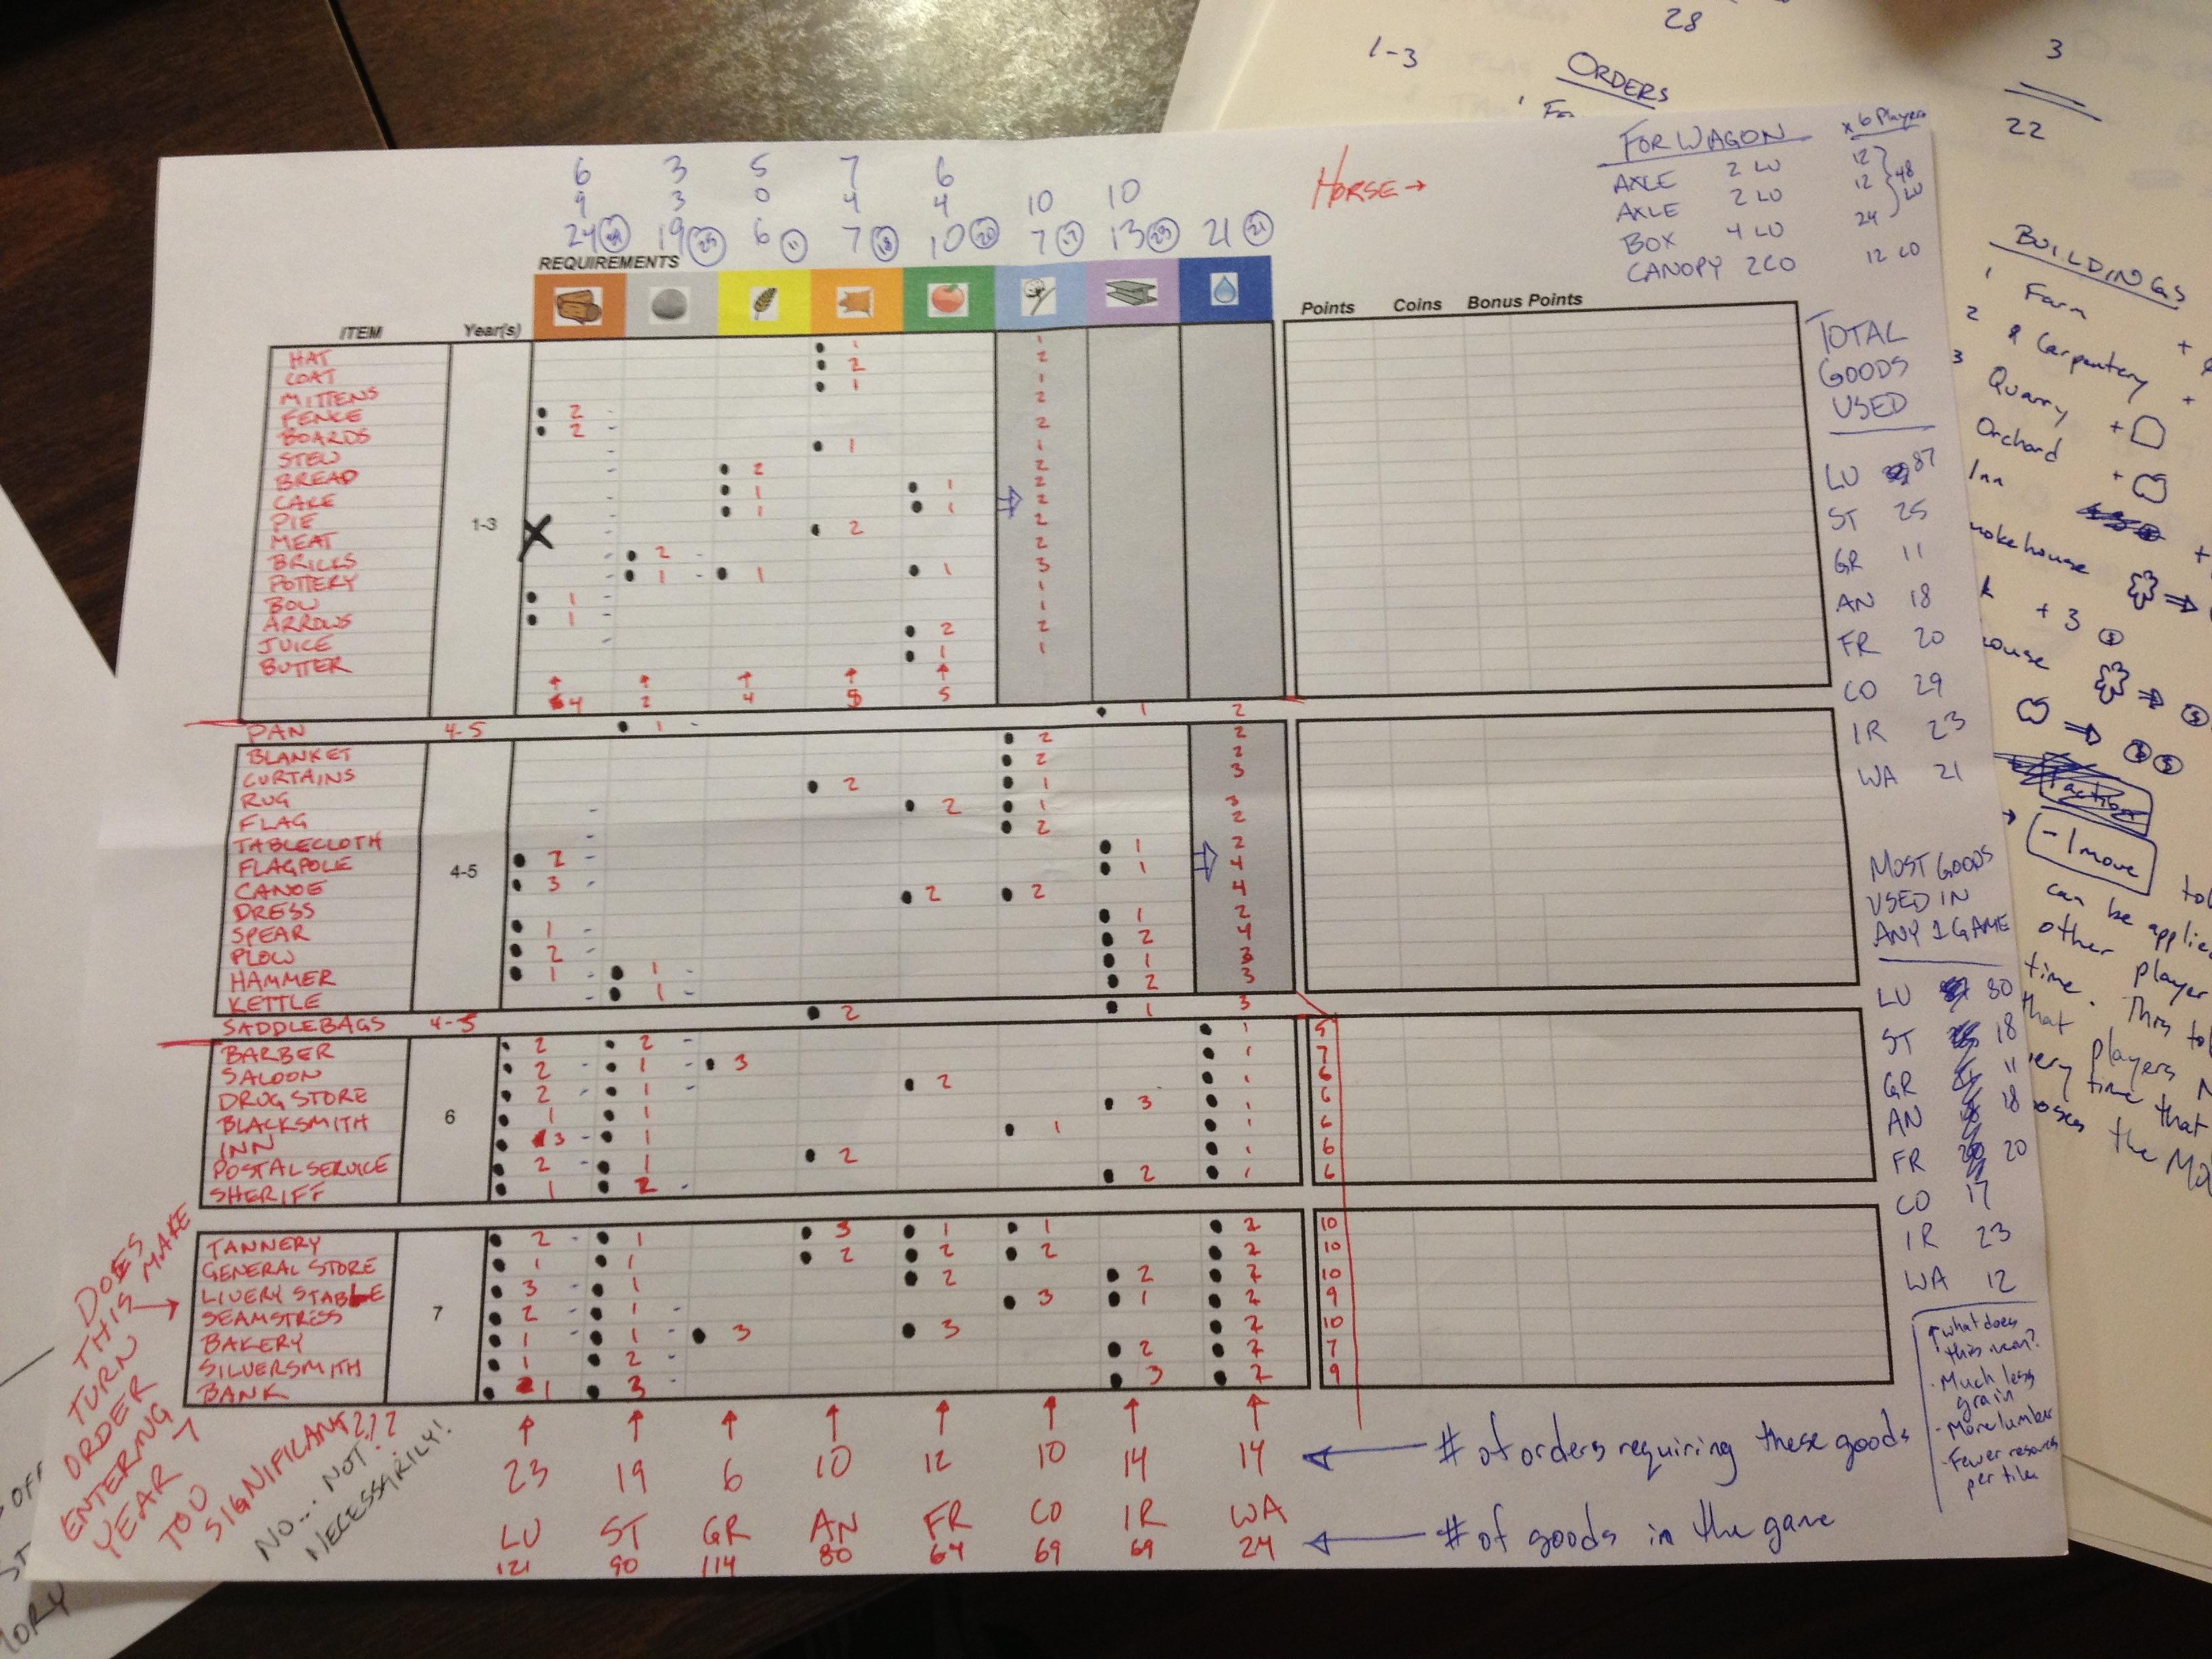 6 3 5 7 6
9 3 0 4 4 10 10
24 19 25 6 11 7 18 10 20 7 17 13 23 21 21
HORSE →
FOR WAGON x 6 Players
AXLE 2 LU 12
AXLE 2 LU 12 48 LU
BOX 4 LU 24
CANOPY 2 CO 12 CO
REQUIREMENTS
ITEM Year(s) Points Coins Bonus Points
HAT 1 1
COAT 2 2
MITTENS 1 1
FENCE 2 2
BOARDS 2 2
STEW 1 1
BREAD 2 2
CAKE 1 1 2
PIE 1 1 2
1-3
MEAT 2 2
BRICKS 2 2
POTTERY 1 1 1 3
BOW 1 1
ARROWS 1 1
JUICE 2 2
BUTTER 1 1
4 2 4 5 5
PAN 4-5 1 1 2
BLANKET 2 2
CURTAINS 2 2
RUG 2 1 3
FLAG 2 1 3
TABLECLOTH 2 2
FLAGPOLE 2 1 2
4-5
CANOE 3 1 4
DRESS 2 2 4
SPEAR 1 1 2
PLOW 2 2 4
HAMMER 1 1 1 3
KETTLE 1 2 3
SADDLEBAGS 4-5 2 1 3
BARBER 2 2 1 5
SALOON 2 1 3 1 7
DRUG STORE 2 1 2 1 6
6
BLACKSMITH 1 1 3 1 6
INN 3 1 1 1 6
POSTAL SERVICE 2 1 2 1 6
SHERIFF 1 2 2 1 6
TANNERY 2 1 3 1 1 2 10
GENERAL STORE 1 1 2 2 2 2 10
LIVERY STABLE 3 1 2 2 2 10
7
SEAMSTRESS 2 1 3 1 2 9
BAKERY 1 1 3 3 2 10
SILVERSMITH 1 2 2 2 7
BANK 1 3 3 2 9
23 19 6 10 12 10 14 14 ← # of orders requiring these goods
LU ST GR AN FR CO IR WA
121 90 114 80 64 69 69 24 ← # of goods in the game
DOES
THIS MAKE
TURN
ORDER
ENTERING
YEAR 7
TOO
SIGNIFICANT???
NO... NOT
NECESSARILY!
TOTAL
GOODS
USED
LU 87
ST 25
GR 11
AN 18
FR 20
CO 29
IR 23
WA 21
MOST GOODS
USED IN
ANY 1 GAME
LU 80
ST 18
GR 11
AN 18
FR 20
CO 17
IR 23
WA 12
what does
this mean?
- Much less
grain
- More lumber
- Fewer resources
per tile
1-3
28
ORDERS
3
22
BUILDINGS
1 Farm
2 Carpentery
3 Quarry
Orchard
Inn
mokehouse
+ 3 $
ouse
-1 move
can be applie
other player
time. This to
that players
ery time that
oses the Ma
OFF
ST
ORY